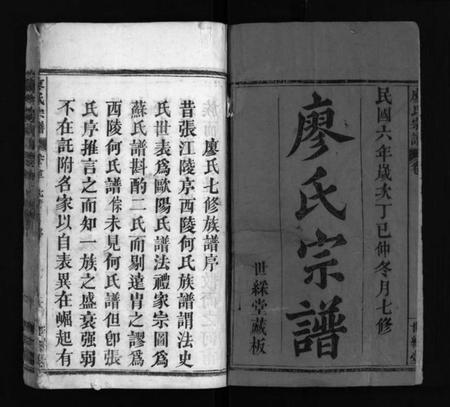 廖氏宗譜
卷
民國六年歲次丁巳仲冬月七修
廖氏宗譜
世綵堂藏板
世綵堂
廖氏七修族譜序
昔張江陵序西陵何氏族譜謂法史
氏世表爲歐陽氏譜法禮家宗圖爲
蘇氏譜斟酌二氏而剔遠胄之謬爲
西陵何氏譜𠋣未見何氏譜但卽張
氏序推言之而知一族之盛衰強弱
不在託附各家以自表異在崛起有
廖氏宗譜